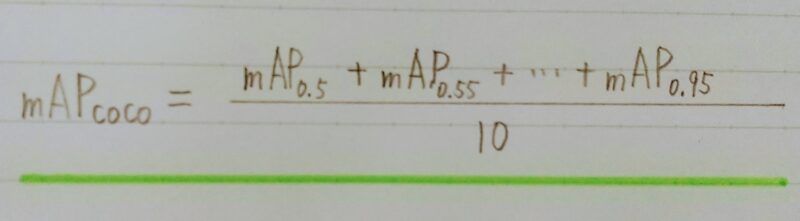 mAP_coco = (mAP_0.5 + mAP_0.55 + ... + mAP_0.95) / 10